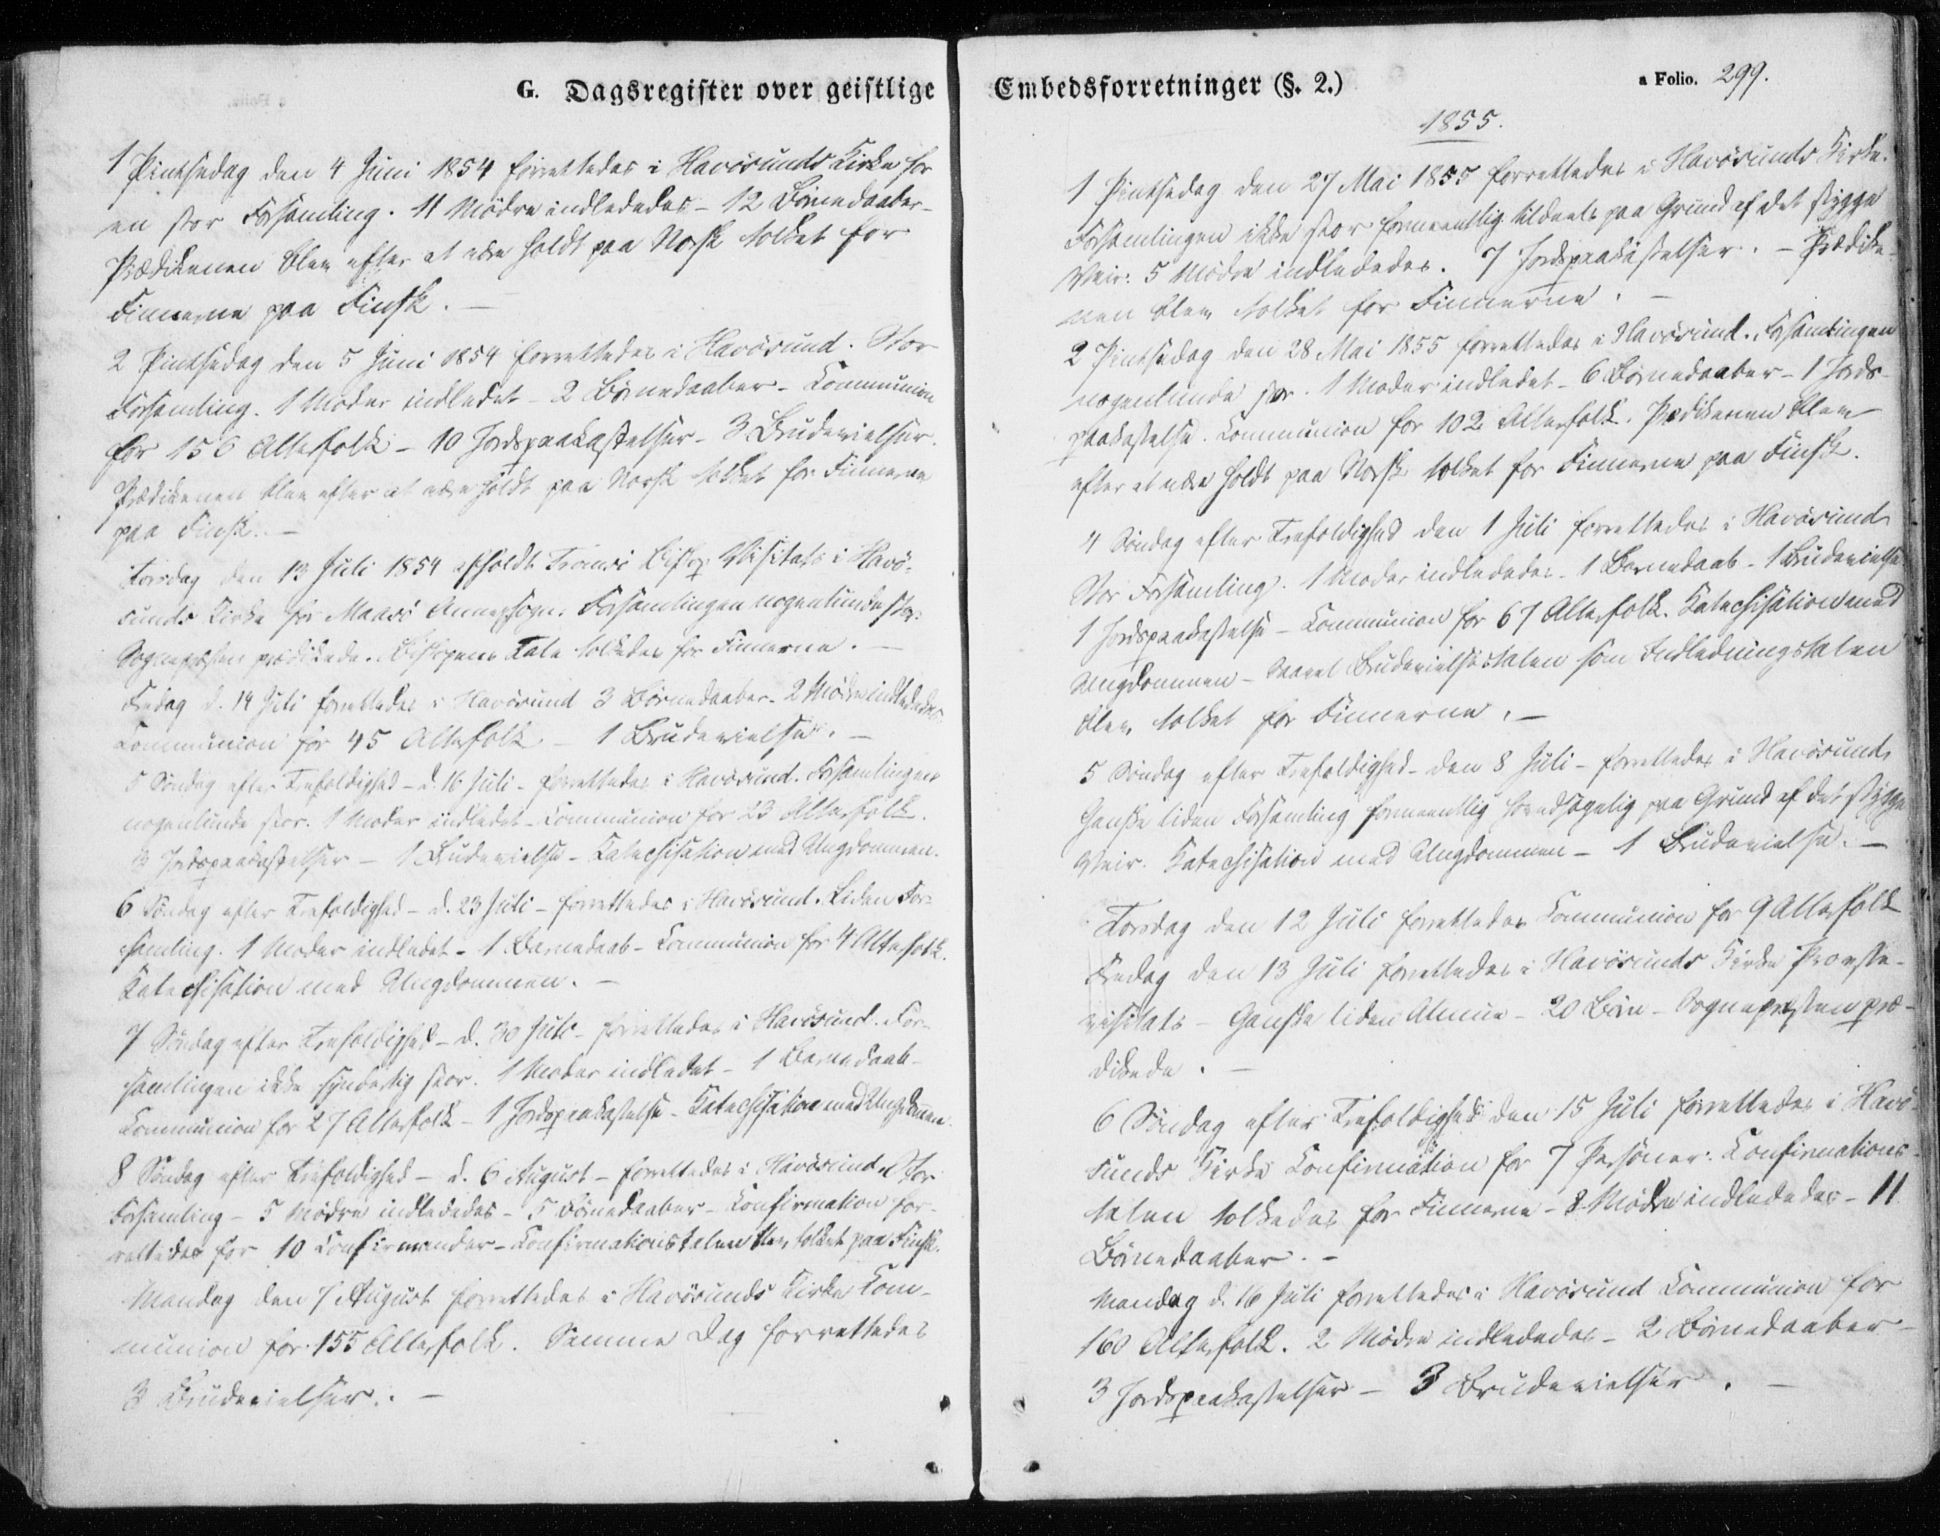 G. Dagsregister over geistlige
1 Pintsedag den 4 Juni 1854 forrettedes i Havösunds Kirke for
en stor Forsamling. 11 Mödre indlededes – 12 Börnedaaber –
Prædikenen blev efter at være holdt paa Norsk tolket for
Finnerne paa Finsk. –
2 Pintsedag den 5 Juni 1854 forrettedes i Havösund. Stor
Forsamling. 1 Moder indledet – 2 Börnedaaber – Communion
for 156 Altersfolk – 10 Jordspaakastelser – 3 Brudevielser.
Prædikenen blev efter at være holdt paa Norsk tolket for Finnerne
paa Finsk. –
Torsdag den 13 Juli 1854 afholdt Tromsö Biskop Visitats i Havö-
sunds Kirke for Maasö Annexsogn. Forsamlingen nogenlunde stor.
Sognepresten prædikede. Biskopens Tale tolkedes for Finnerne. –
Fredag d. 14 Juli forrettedes i Havösund 3 Börnedaaber – 2 Mödre indlededes.
Communion for 45 Altersfolk – 1 Brudevielse. –
5 Söndag efter Trefoldighed – d. 16 Juli – forrettedes i Havösund. Forsamlingen
nogenlunde stor. 1 Moder indledet – Communion for 23 Altersfolk.
Jordspaakastelser – 1 Brudevielse – Katechisation med Ungdommen.
6 Söndag efter Trefoldighed – d. 23 Juli – forrettedes i Havösund. Liden For-
samling. 1 Moder indledet – 1 Barnedaab – Communion for 4 Altersfolk.
Katechisation med Ungdommen. –
7 Söndag efter Trefoldighed – d. 30 Juli – forrettedes i Havösund. For-
samlingen ikke synderlig stor. 1 Moder indledet – 1 Barnedaab –
Communion for 27 Altersfolk – 1 Jordspaakastelse – Katechisation med Ungdommen.
8 Söndag efter Trefoldighed – d. 6 August – forrettedes i Havösund. Stor
Forsamling – 5 Mödre indlededes – 5 Börnedaaber – Confirmation for-
rettedes for 10 Confirmander – Confirmationstalen blev tolket paa Finsk.
Mandag den 7 August forrettedes i Havösunds Kirke Com-
munion for 155 Altersfolk. Samme Dag forrettedes
3 Brudevielser. –
Embedsforretninger (§. 2.)
a Folio. 299.
1855.
1 Pintsedag den 27 Mai 1855 forrettedes i Havösunds Kirke.
Forsamlingen ikke stor formeentlig tildeels paa Grund af det stygge
Veir. 5 Mödre indlededes. 7 Jordspaakastelser. – Prædike-
nen blev tolket for Finnerne. –
2 Pintsedag den 28 Mai 1855 forrettedes i Havösund. Forsamlingen
nogenlunde stor. 1 Moder indledet – 6 Börnedaaber – 1 Jords-
paakastelse. Communion for 102 Altersfolk. Prædikenen blev
efter at være holdt paa Norsk tolket for Finnerne paa Finsk.
4 Söndag efter Trefoldighed den 1 Juli forrettedes i Havösund
Stor Forsamling. 1 Moder indlededes – 1 Barnedaab – 1 Brudevielse
1 Jordspaakastelse – Communion for 67 Altersfolk. Katechisation med
Ungdommen – Saavel Brudevielsestalen som Indledningstalen
blev tolket for Finnerne. –
5 Söndag efter Trefoldighed – den 8 Juli – forrettedes i Havösund
Ganske liden Forsamling formeentlig hovedsagelig paa Grund af det stygge
Veir. Katechisation med Ungdommen – 1 Brudevielse. –
Torsdag den 12 Juli forrettedes Communion for 9 Altersfolk
Fredag den 13 Juli forrettedes i Havösunds Kirke Provste-
visitats – Ganske liden Almue – 20 Börn – Sognepresten præ-
dikede. –
6 Söndag efter Trefoldighed den 15 Juli forrettedes i Havö-
sunds Kirke Confirmation for 7 Personer. Confirmations-
talen tolkedes for Finnerne – 8 Mödre indlededes – 11
Börnedaaber. –
Mandag d. 16 Juli forrettedes i Havösund Communion for
160 Altersfolk. 2 Mödre indlededes – 2 Börnedaaber –
3 Jordspaakastelser – 3 Brudevielser. –